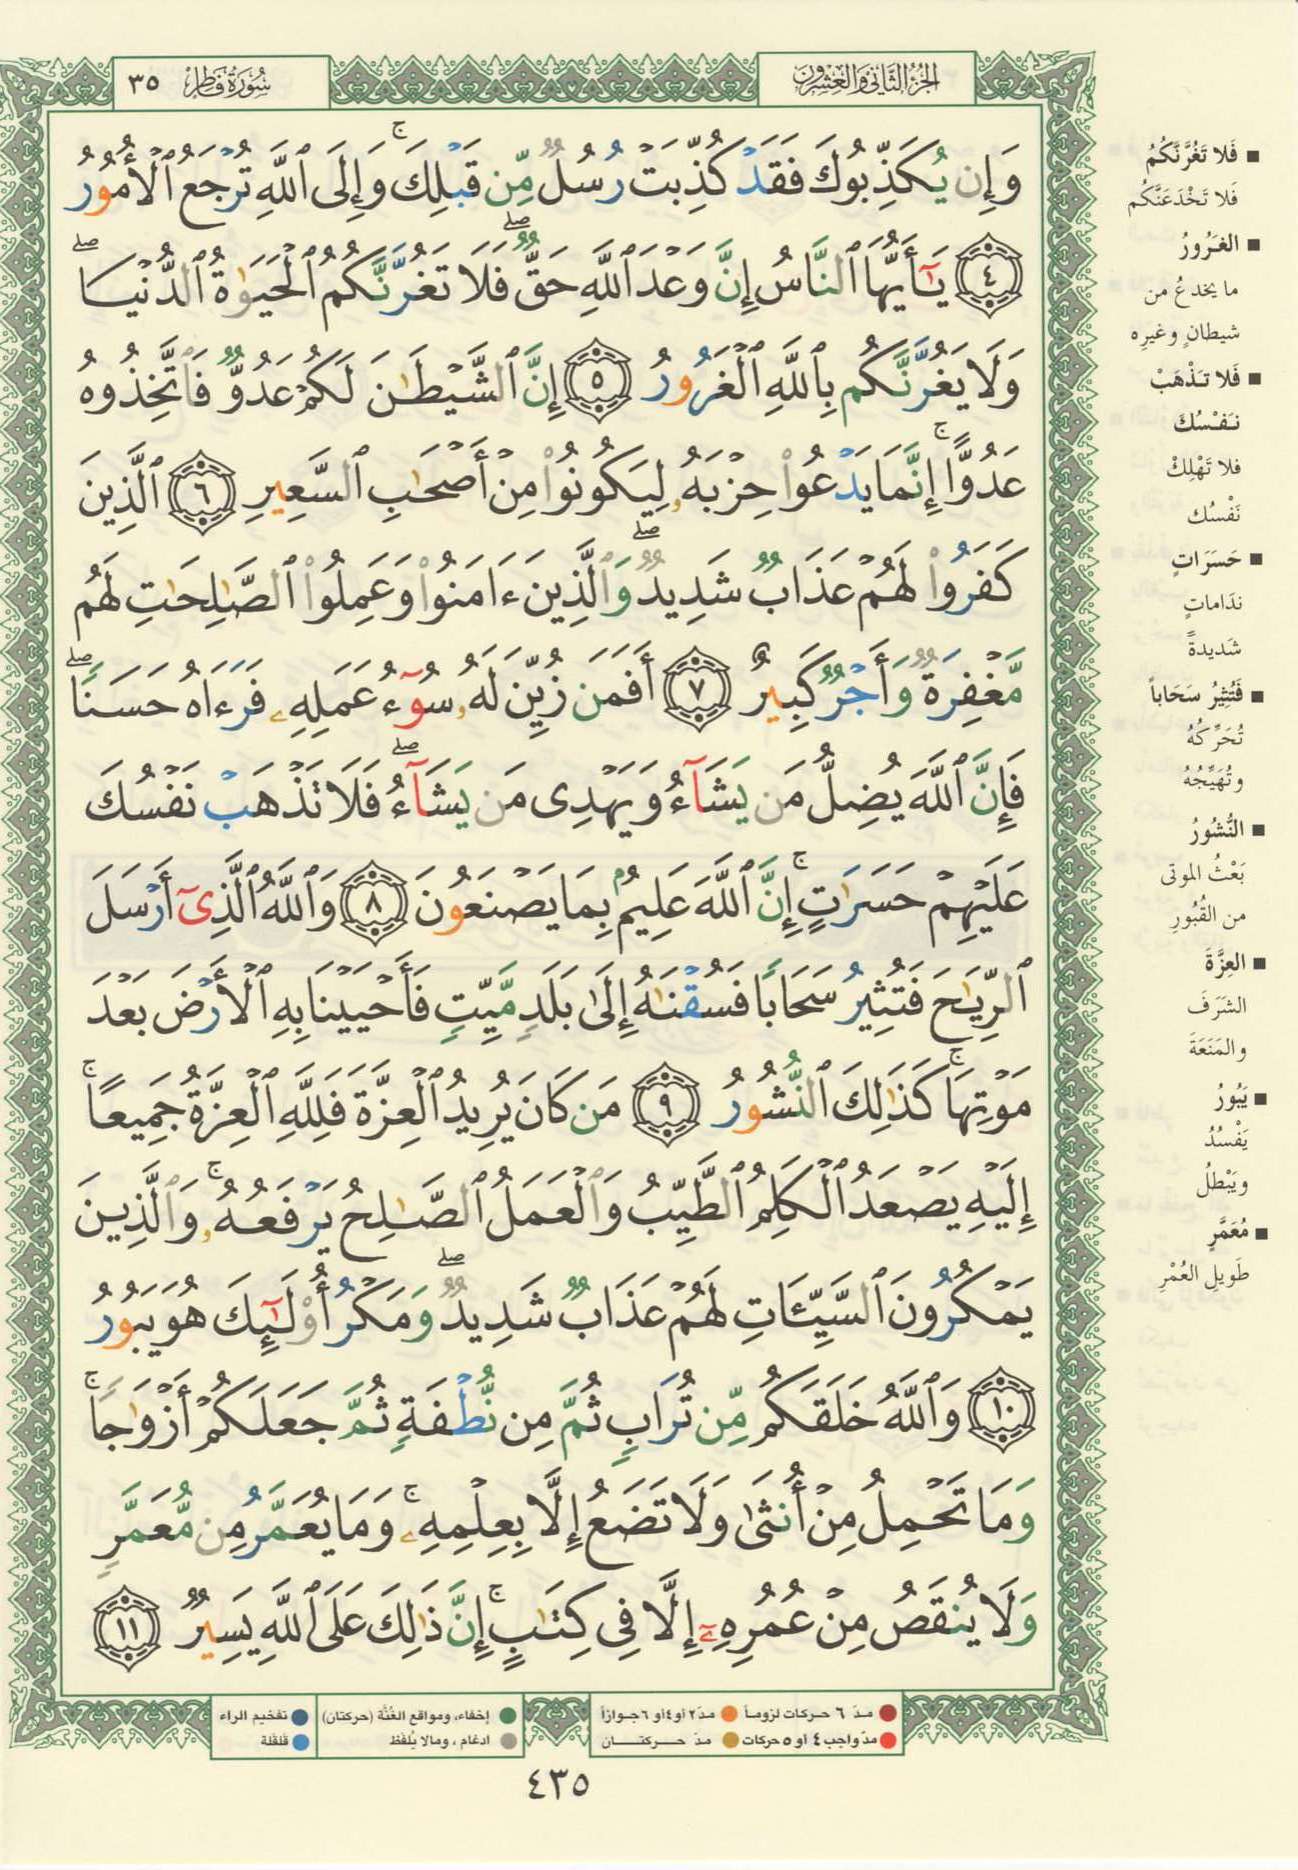 سُورَةُ فَاطِر ٣٥
الجُزْءُ الثَّانِي وَالعِشْرُونَ
وَإِن يُكَذِّبُوكَ فَقَدْ كُذِّبَتْ رُسُلٌ مِّن قَبْلِكَ ۚ وَإِلَى ٱللَّهِ تُرْجَعُ ٱلْأُمُورُ
٤ يَٰٓأَيُّهَا ٱلنَّاسُ إِنَّ وَعْدَ ٱللَّهِ حَقٌّ ۖ فَلَا تَغُرَّنَّكُمُ ٱلْحَيَوٰةُ ٱلدُّنْيَا ۖ
وَلَا يَغُرَّنَّكُم بِٱللَّهِ ٱلْغَرُورُ ٥ إِنَّ ٱلشَّيْطَٰنَ لَكُمْ عَدُوٌّ فَٱتَّخِذُوهُ
عَدُوًّا ۚ إِنَّمَا يَدْعُوا۟ حِزْبَهُۥ لِيَكُونُوا۟ مِنْ أَصْحَٰبِ ٱلسَّعِيرِ ٦ ٱلَّذِينَ
كَفَرُوا۟ لَهُمْ عَذَابٌ شَدِيدٌ ۖ وَٱلَّذِينَ ءَامَنُوا۟ وَعَمِلُوا۟ ٱلصَّٰلِحَٰتِ لَهُم
مَّغْفِرَةٌ وَأَجْرٌ كَبِيرٌ ٧ أَفَمَن زُيِّنَ لَهُۥ سُوٓءُ عَمَلِهِۦ فَرَءَاهُ حَسَنًا ۖ
فَإِنَّ ٱللَّهَ يُضِلُّ مَن يَشَآءُ وَيَهْدِى مَن يَشَآءُ ۖ فَلَا تَذْهَبْ نَفْسُكَ
عَلَيْهِمْ حَسَرَٰتٍ ۚ إِنَّ ٱللَّهَ عَلِيمٌۢ بِمَا يَصْنَعُونَ ٨ وَٱللَّهُ ٱلَّذِىٓ أَرْسَلَ
ٱلرِّيَٰحَ فَتُثِيرُ سَحَابًا فَسُقْنَٰهُ إِلَىٰ بَلَدٍ مَّيِّتٍ فَأَحْيَيْنَا بِهِ ٱلْأَرْضَ بَعْدَ
مَوْتِهَا ۚ كَذَٰلِكَ ٱلنُّشُورُ ٩ مَن كَانَ يُرِيدُ ٱلْعِزَّةَ فَلِلَّهِ ٱلْعِزَّةُ جَمِيعًا ۚ
إِلَيْهِ يَصْعَدُ ٱلْكَلِمُ ٱلطَّيِّبُ وَٱلْعَمَلُ ٱلصَّٰلِحُ يَرْفَعُهُۥ ۚ وَٱلَّذِينَ
يَمْكُرُونَ ٱلسَّيِّـَٔاتِ لَهُمْ عَذَابٌ شَدِيدٌ ۖ وَمَكْرُ أُو۟لَٰٓئِكَ هُوَ يَبُورُ
١٠ وَٱللَّهُ خَلَقَكُم مِّن تُرَابٍ ثُمَّ مِن نُّطْفَةٍ ثُمَّ جَعَلَكُمْ أَزْوَٰجًا ۚ
وَمَا تَحْمِلُ مِنْ أُنثَىٰ وَلَا تَضَعُ إِلَّا بِعِلْمِهِۦ ۚ وَمَا يُعَمَّرُ مِن مُّعَمَّرٍ
وَلَا يُنقَصُ مِنْ عُمُرِهِۦٓ إِلَّا فِى كِتَٰبٍ ۚ إِنَّ ذَٰلِكَ عَلَى ٱللَّهِ يَسِيرٌ ١١
■ فَلا تَغُرَّنَّكُمُ
فَلا تَخْدَعَنَّكُم
■ الغَرُورُ
ما يخدعُ من
شيطانٍ وغيرِه
■ فَلا تَذْهَبْ
نَفْسُكَ
فلا تَهْلِكْ
نَفْسُك
■ حَسَرَاتٍ
ندَاماتٍ
شديدةً
■ فَتُثِيرُ سَحَاباً
تُحَرِّكُهُ
وتُهَيِّجُهُ
■ النُّشُورُ
بَعْثُ الموتى
من القُبُورِ
■ العِزَّةَ
الشَرَفَ
والمَنَعَةَ
■ يَبُورُ
يَفْسُدُ
ويَبْطلُ
■ مُعَمَّرٍ
طَويلِ العُمْرِ
مدّ ٦ حركات لزوماً
مدّ ٢ أو ٤ أو ٦ جوازاً
مدّ واجب ٤ أو ٥ حركات
مدّ حـركتـــان
إخفاء، ومواقع الغُنَّة (حركتان)
ادغام ، ومالا يُلفَظ
تفخيم الراء
قلقلة
٤٣٥